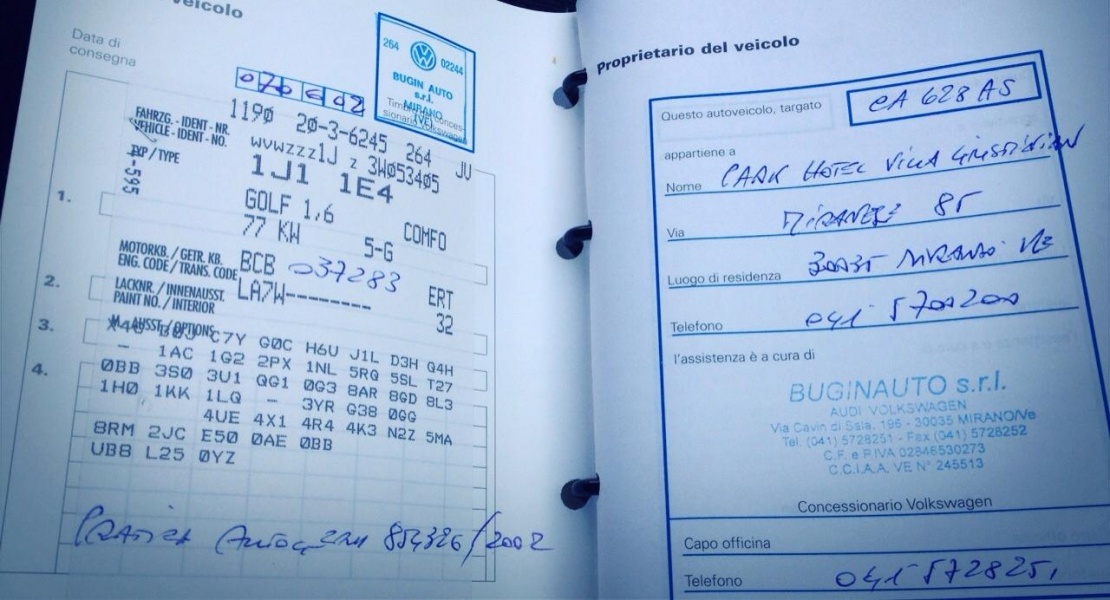 veicolo
Data di
consegna
070602
264 02244
BUGIN AUTO
s.r.l.
MIRANO
(VE)
1190 20-3-6245 264 JU
FAHRZG.-IDENT-NR.
VEHICLE-IDENT-NO.
WVWZZZ1J Z 3W053405
TYP/TYPE
1J1 1E4
-595
1.
GOLF 1,6 COMFO
77 KW 5-G
MOTORKB./GETR. KB.
ENG. CODE/TRANS. CODE
BCB 037283 ERT
2.
LACKNR./INNENAUSST.
PAINT NO./INTERIOR
LA7W-------- 32
3.
M.-AUSST./OPTIONS
C7Y G0C H6U J1L D3H Q4H
- 1AC 1G2 2PX 1NL 5RQ 5SL T27
4.
0BB 3S0 3U1 QG1 0G3 8AR 8GD 8L3
1H0 1KK 1LQ - 3YR G38 0GG
4UE 4X1 4R4 4K3 N2Z 5MA
8RM 2JC E50 0AE 0BB
UB8 L25 0YZ
854326/2002
Proprietario del veicolo
Questo autoveicolo, targato CA 628 AS
appartiene a
Nome PARK HOTEL VILLA
Via MIRANESE 85
Luogo di residenza 30035 MIRANO VE
Telefono 041-5700200
l'assistenza è a cura di
BUGINAUTO s.r.l.
AUDI VOLKSWAGEN
Via Cavin di Sala, 195 - 30035 MIRANO/Ve
Tel. (041) 5728251 - Fax (041) 5728252
C.F. e P.IVA 02846530273
C.C.I.A.A. VE N° 245513
Concessionario Volkswagen
Capo officina
Telefono 041-5728251